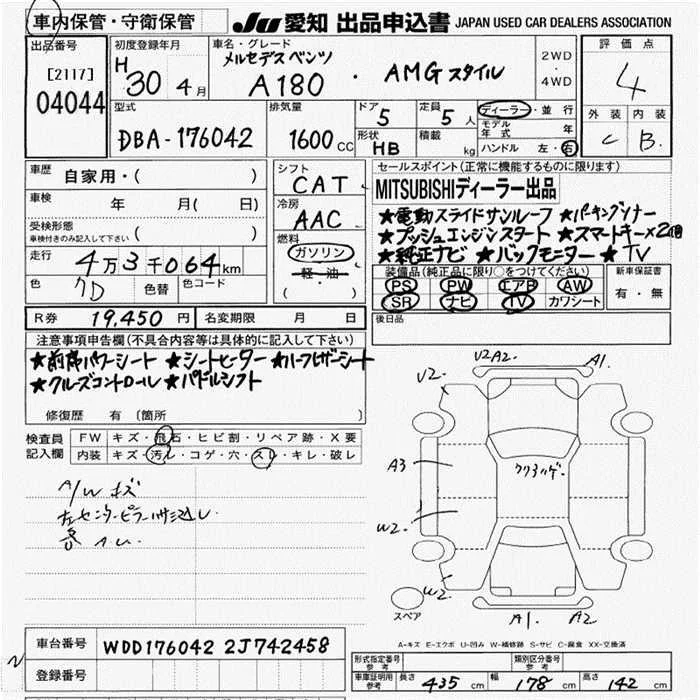 車内保管・守衛保管
JU 愛知 出品申込書 JAPAN USED CAR DEALERS ASSOCIATION
出品番号
[2117]
04044
初度登録年月
H 30 4 月
車名・グレード
メルセデスベンツ
A180 ・ AMGスタイル
2WD
・
4WD
評価点
4
外装 内装
C B.
型式
DBA-176042
排気量
1600 CC
ドア
5
定員
5 人
形状
HB
積載
kg
ディーラー・並行
モデル年式 年
ハンドル 左・右
車歴 自家用・( )
車検 年 月( 日)
受検形態
車検付きのみ記入して下さい ( )
走行 4万3千064km
色 クロ 色替 色コード
シフト
CAT
冷房
AAC
燃料
ガソリン
・軽・油
( )
セールスポイント(正常に機能するものに限ります)
MITSUBISHIディーラー出品
★電動スライドサンルーフ ★パーキングソナー
★プッシュエンジンスタート ★スマートキー×2個
★純正ナビ ★バックモニター ★TV
装備品(純正品に限り○をつけてください)
PS PW エアB AW
SR ナビ TV カワシート
新車保証書
有・無
後日品
R券 19,450 円 名変期限 月 日
注意事項申告欄(不具合内容等は具体的に記入して下さい)
★前席パワーシート ★シートヒーター ★ハーフレザーシート
★クルーズコントロール ★パドルシフト
修復歴 有 (箇所 )
検査員
記入欄
FW キズ・飛石・ヒビ割・リペア跡・X要
内装 キズ・汚レ・コゲ・穴・スレ・キレ・破レ
A/W キズ
左センターピラー
U2A2. A1.
U2.
A3
W2.
W2.
A1. A2
スペア
A-キズ E-エクボ U-凹み W-補修跡 S-サビ C-腐食 XX-交換済
車台番号 WDD176042 2J742458
登録番号
形式指定番号
参考
類別区分番号
参考
車庫証明用
参考
長さ 435 cm 幅 178 cm 高さ 142 cm